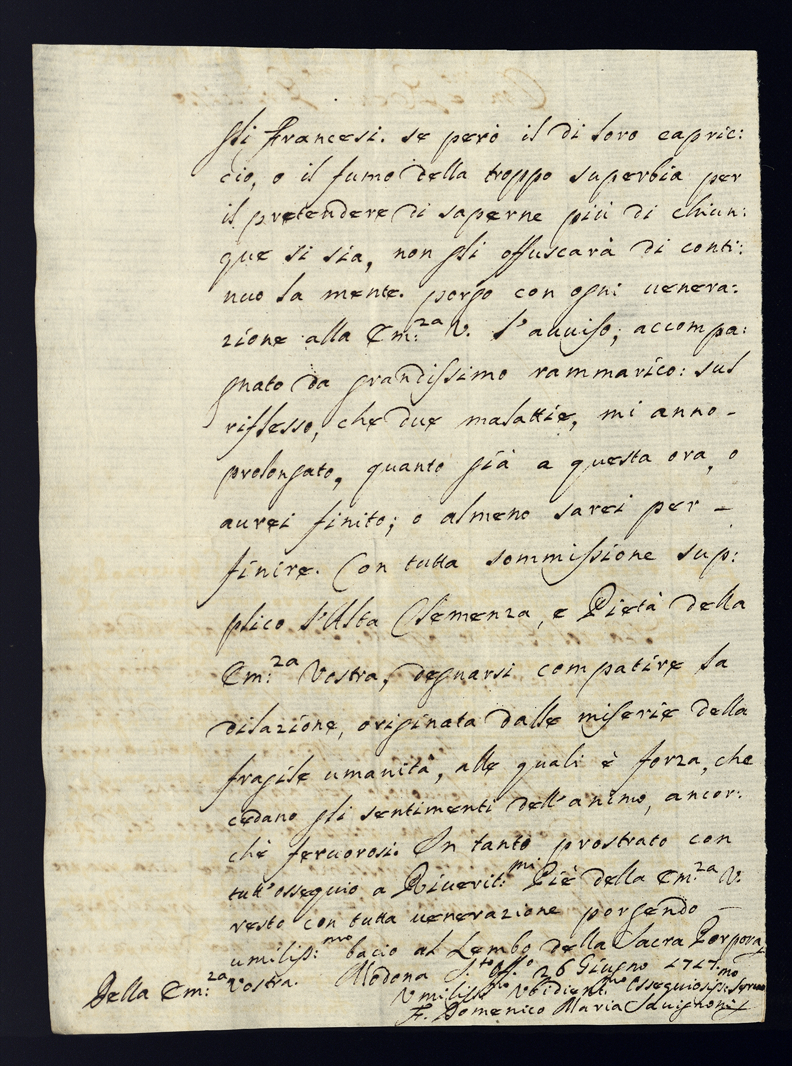 gli Francesi. se però il di loro capric:
cio, o il fumo della troppo superbia per
il pretendere di saperne più di chiun:
que si sia, non gli offuscarà di conti:
nuo la mente. porgo con ogni venera:
zione alla Em:za V. l'avviso, accompa:
gnato da grandissimo rammarico: sul
riflesso, che due malattie, mi anno -
prolongato, quanto già a questa ora, o
aurei finito; o almeno sarei per -
finire. Con tutta sommissione sup:
plico l'Alta Clemenza, e Pietà della
Em:za Vostra, degnarsi compatire la
dilazione, originata dalle miserie della
fragile umanità, alle quali è forza, che
cedano gli sentimenti dell'animo, ancor:
chè fervorosi. In tanto prostrato con
tutt'ossequio a Riverit:mi Piè della Em:za V.
resto con tutta venerazione porgendo -
umiliss:mo bacio al Lembo della Sacra Porpora
Vostra. Modona S.to Off.o 26 Giugno 1727.
Della Em:za Umiliss:mo Ubidient:mo Ossequiosiss:mo Servo
F. Domenico Maria